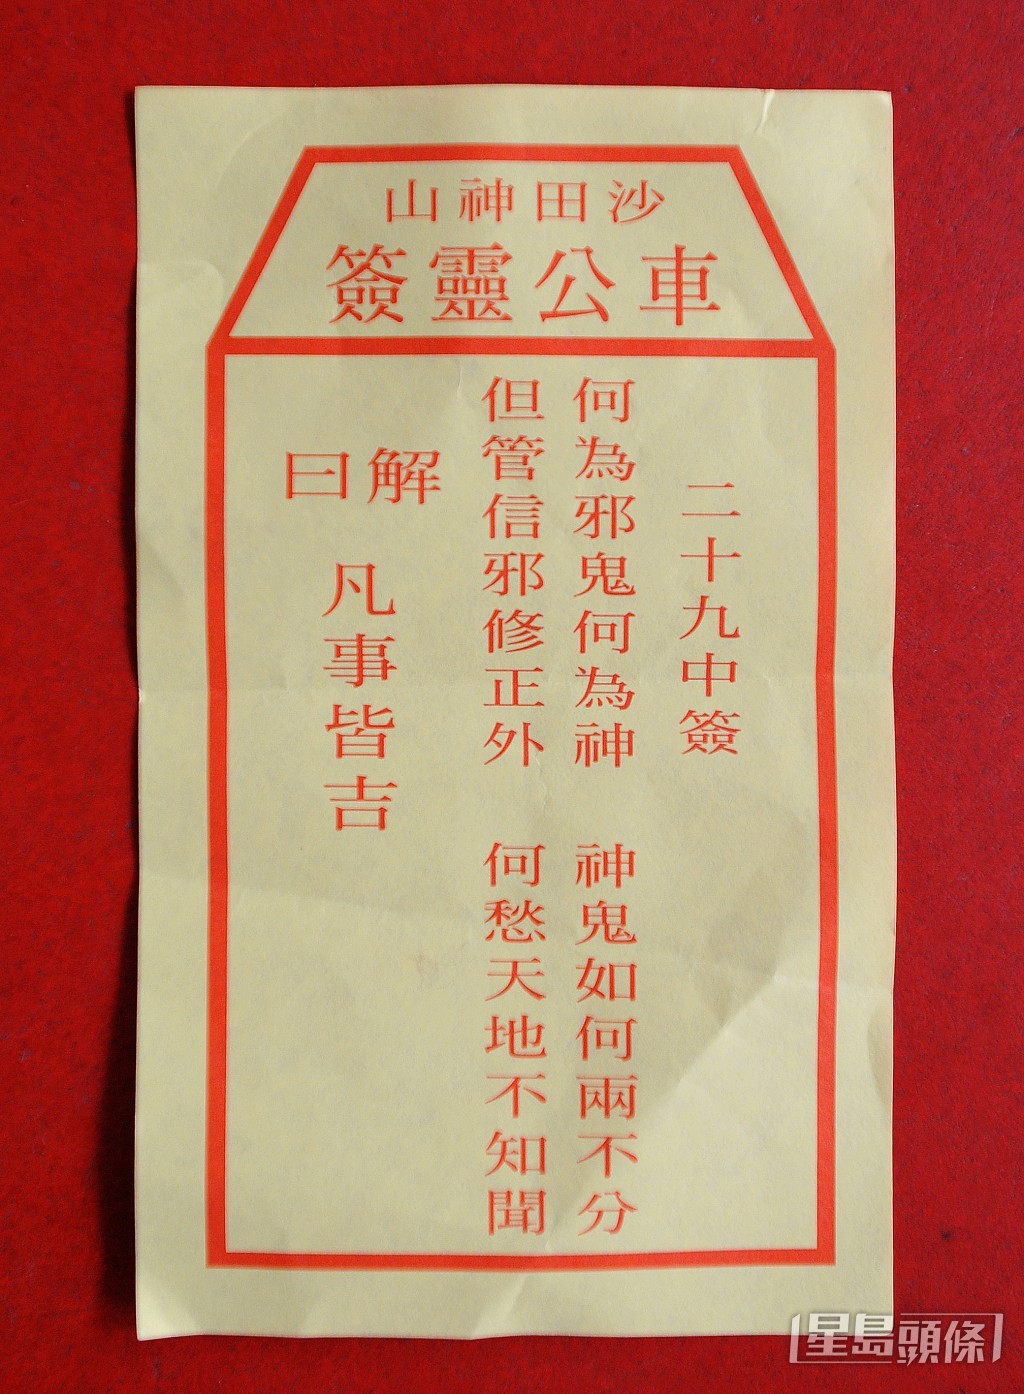 沙田神山
車公靈簽
二十九中簽
何為邪鬼何為神 神鬼如何兩不分
但管信邪修正外 何愁天地不知聞
解曰
凡事皆吉
星島頭條